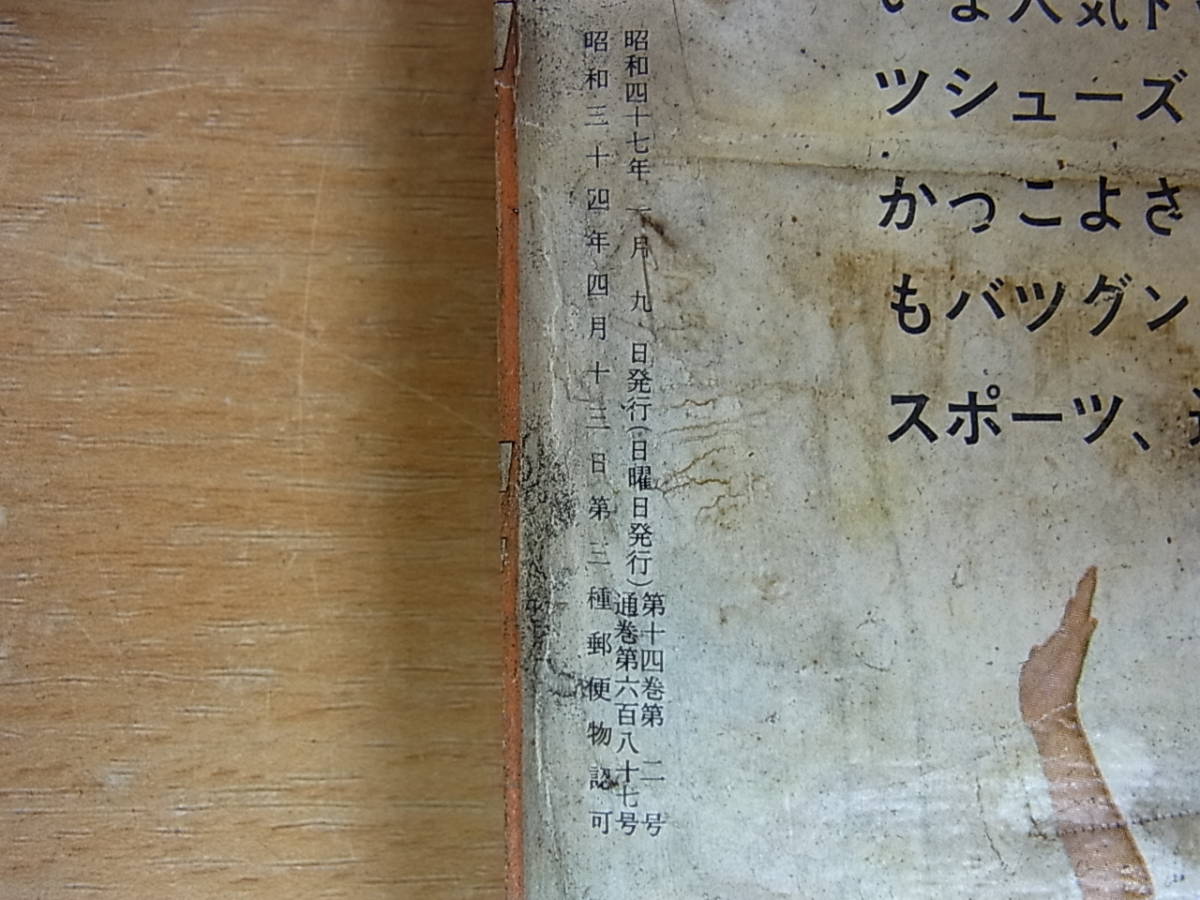 ツシューズ
かっこよさ
もバツグン
スポーツ、
昭和四十七年一月九日発行(日曜日発行)第十四巻第二号
通巻第六百八十七号
昭和三十四年四月十三日第三種郵便物認可